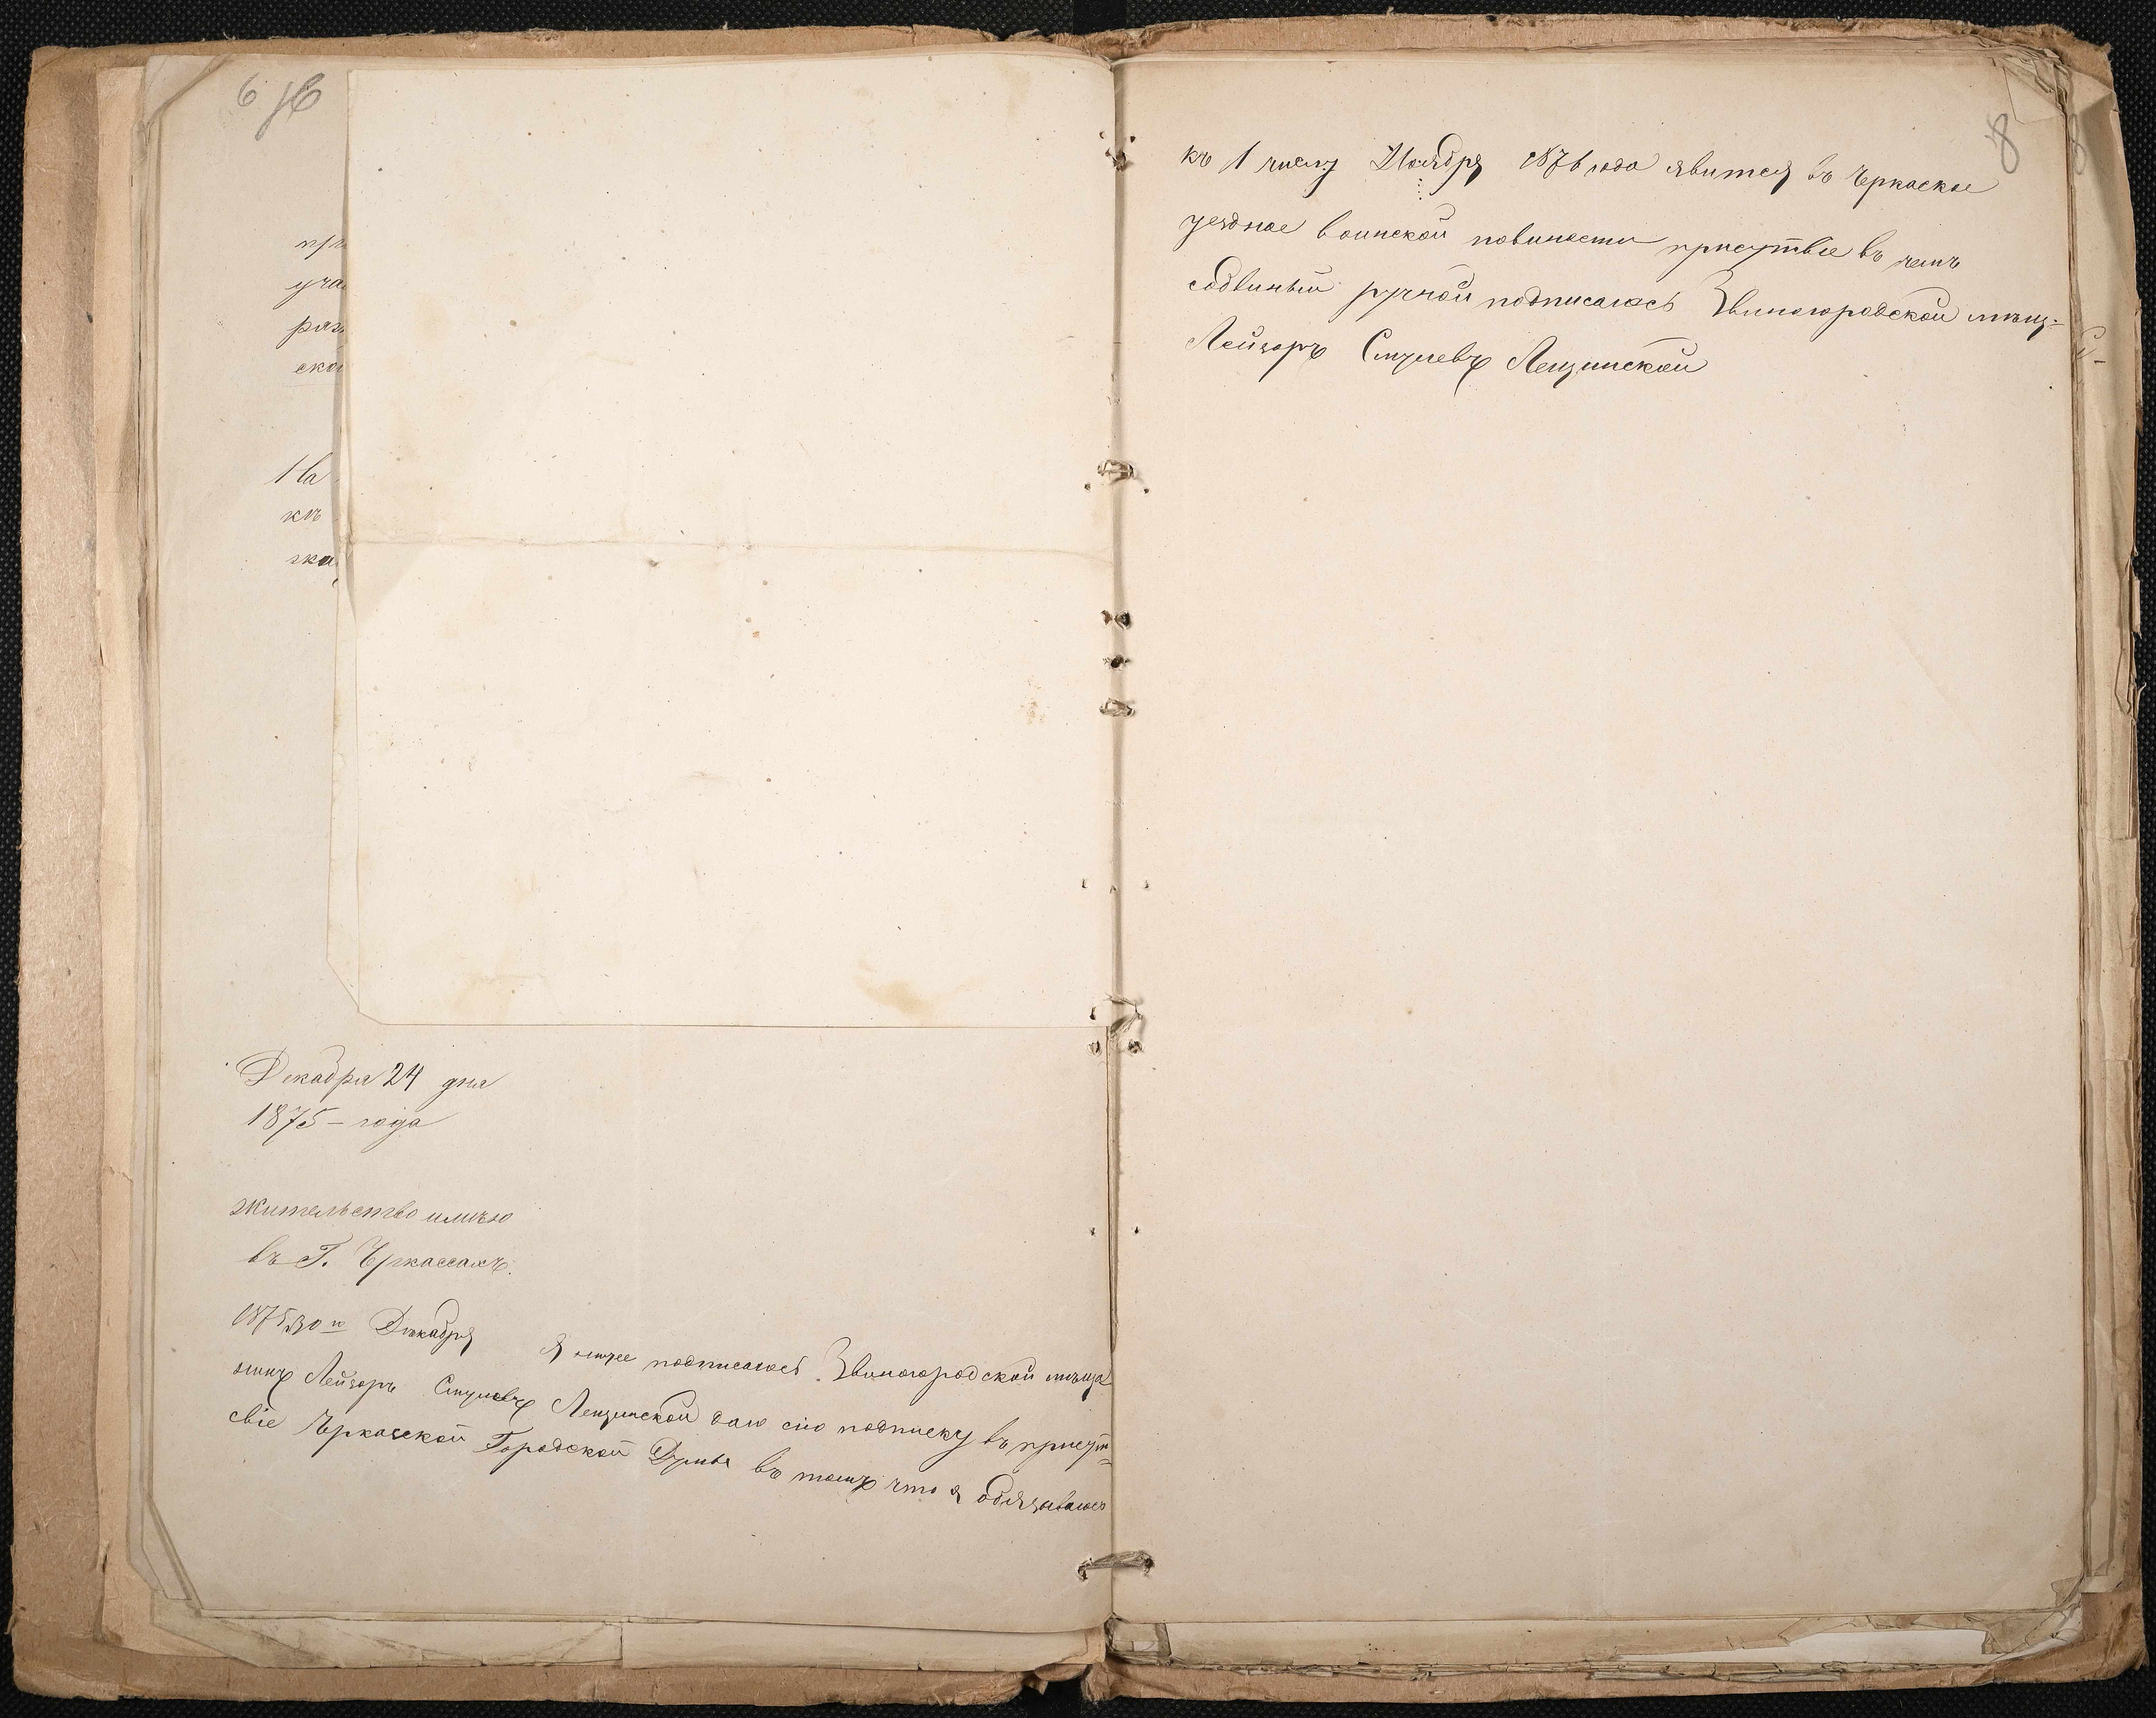 6
пр
уча
раз
ско
На
къ
ска
Декабря 24 дня
1875 – года
жительство имѣю
въ Г. Черкассахъ.
1875 30 го Декабря Я ниже подписался Звиногородской мѣща
нинъ Лейзоръ Смулевъ Лещинской даю сию подписку въ присут=
свіе Черкаской Городской Думы въ томъ что я обязываюсь
8
къ 1 числу Ноября 1876 года явится въ Черкаское
уездное воинской повиности присутвіе въ чемъ
собвиный ручной подписалась Звиногородской мѣщ=
Лейзоръ Смулевъ Лещинской